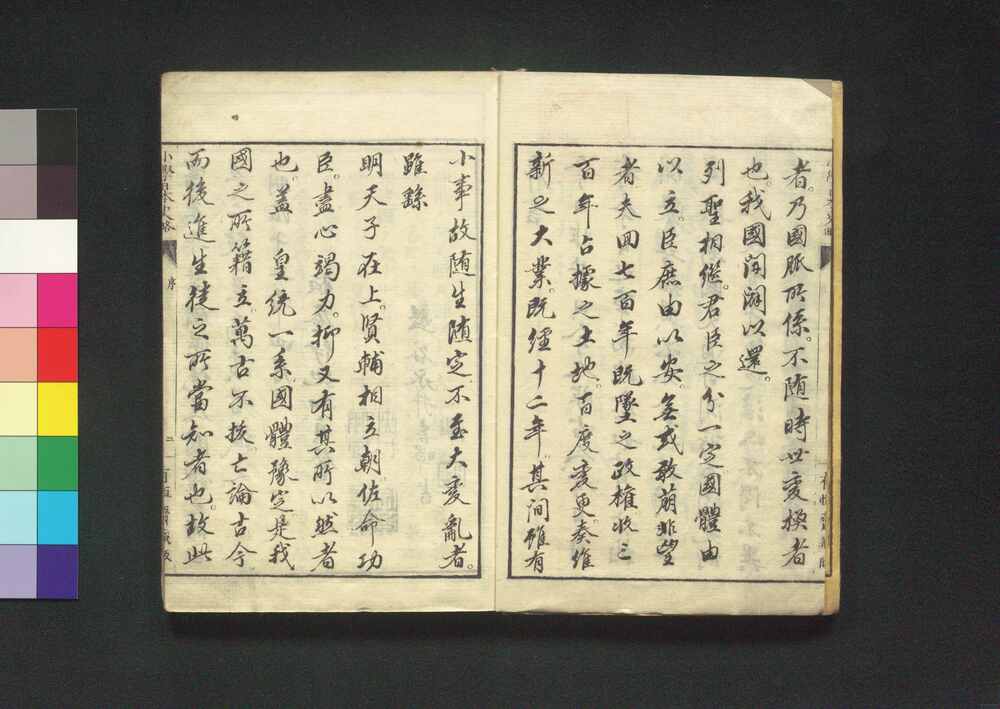 者。乃國脈所係。不随時世変換者
也。我國開闢以還。
列聖相繼。君臣之分一定。國體由
以立。臣庶由以安。無或敢萌非望
者。夫回七百年既墜之政權。收三
百年占據之土地。百度変更。奏維
新之大業。既經十二年。其间雖有
小事故随生随定。不至大変亂者。
雖繇
明天子在上。賢輔相立朝。佐命功
臣。盡心竭力。抑又有其所以然者
也。蓋皇統一系。國體豫定。是我
國之所籍立。萬古不拔。亡論古今
而後進生徒之所當知者也。故此
序
二